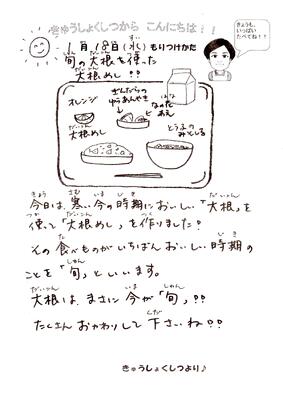 きゅうしょくしつから こんにちは！！
きょうも、
いっぱい
たべてね！！
1月18日(水) もりつけかた
旬の大根を使った
大根めし!!
ぎんだらの
ゆうあんやき
はなの
あえ
オレンジ
大根めし
とうふの
みそしる
今日は、寒い今の時期においしい「大根」を
使って「大根めし」を作りました！
その食べものがいちばんおいしい時期の
ことを「旬」といいます。
大根は、まさに今が「旬」!!
たくさんおかわりして下さいね!!
きゅうしょくしつより♪